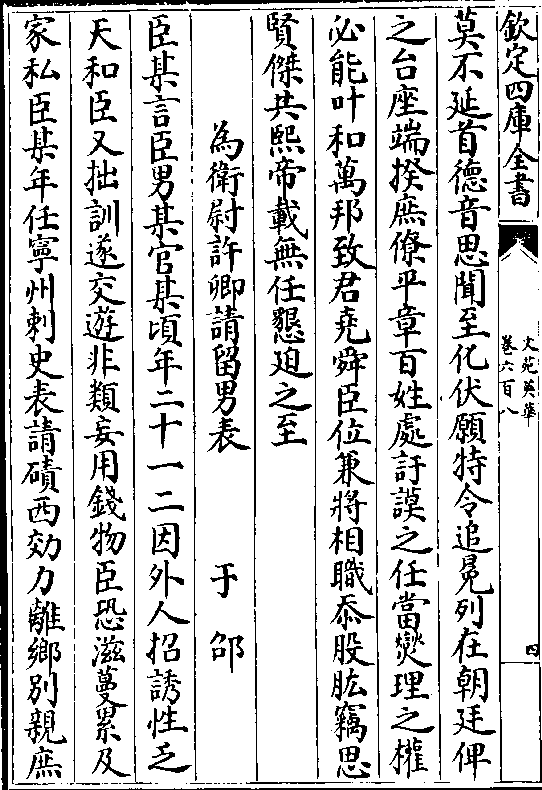 欽定四庫全書
文苑英華
卷六百八
四
莫不延首德音思聞至化伏願特令追冕列在朝廷俾
之台座端揆庶僚平章百姓處訏謨之任當燮理之權
必能叶和萬邦致君堯舜臣位兼將相職忝股肱竊思
賢傑共熙帝載無任懇迫之至
為衛尉許卿請留男表 于邵
臣某言臣男某官某頃年二十一二因外人招誘性乏
天和臣又拙訓遂交遊非類妄用錢物臣恐滋蔓累及
家私臣某年任寧州刺史表請磧西効力離鄉别親庶